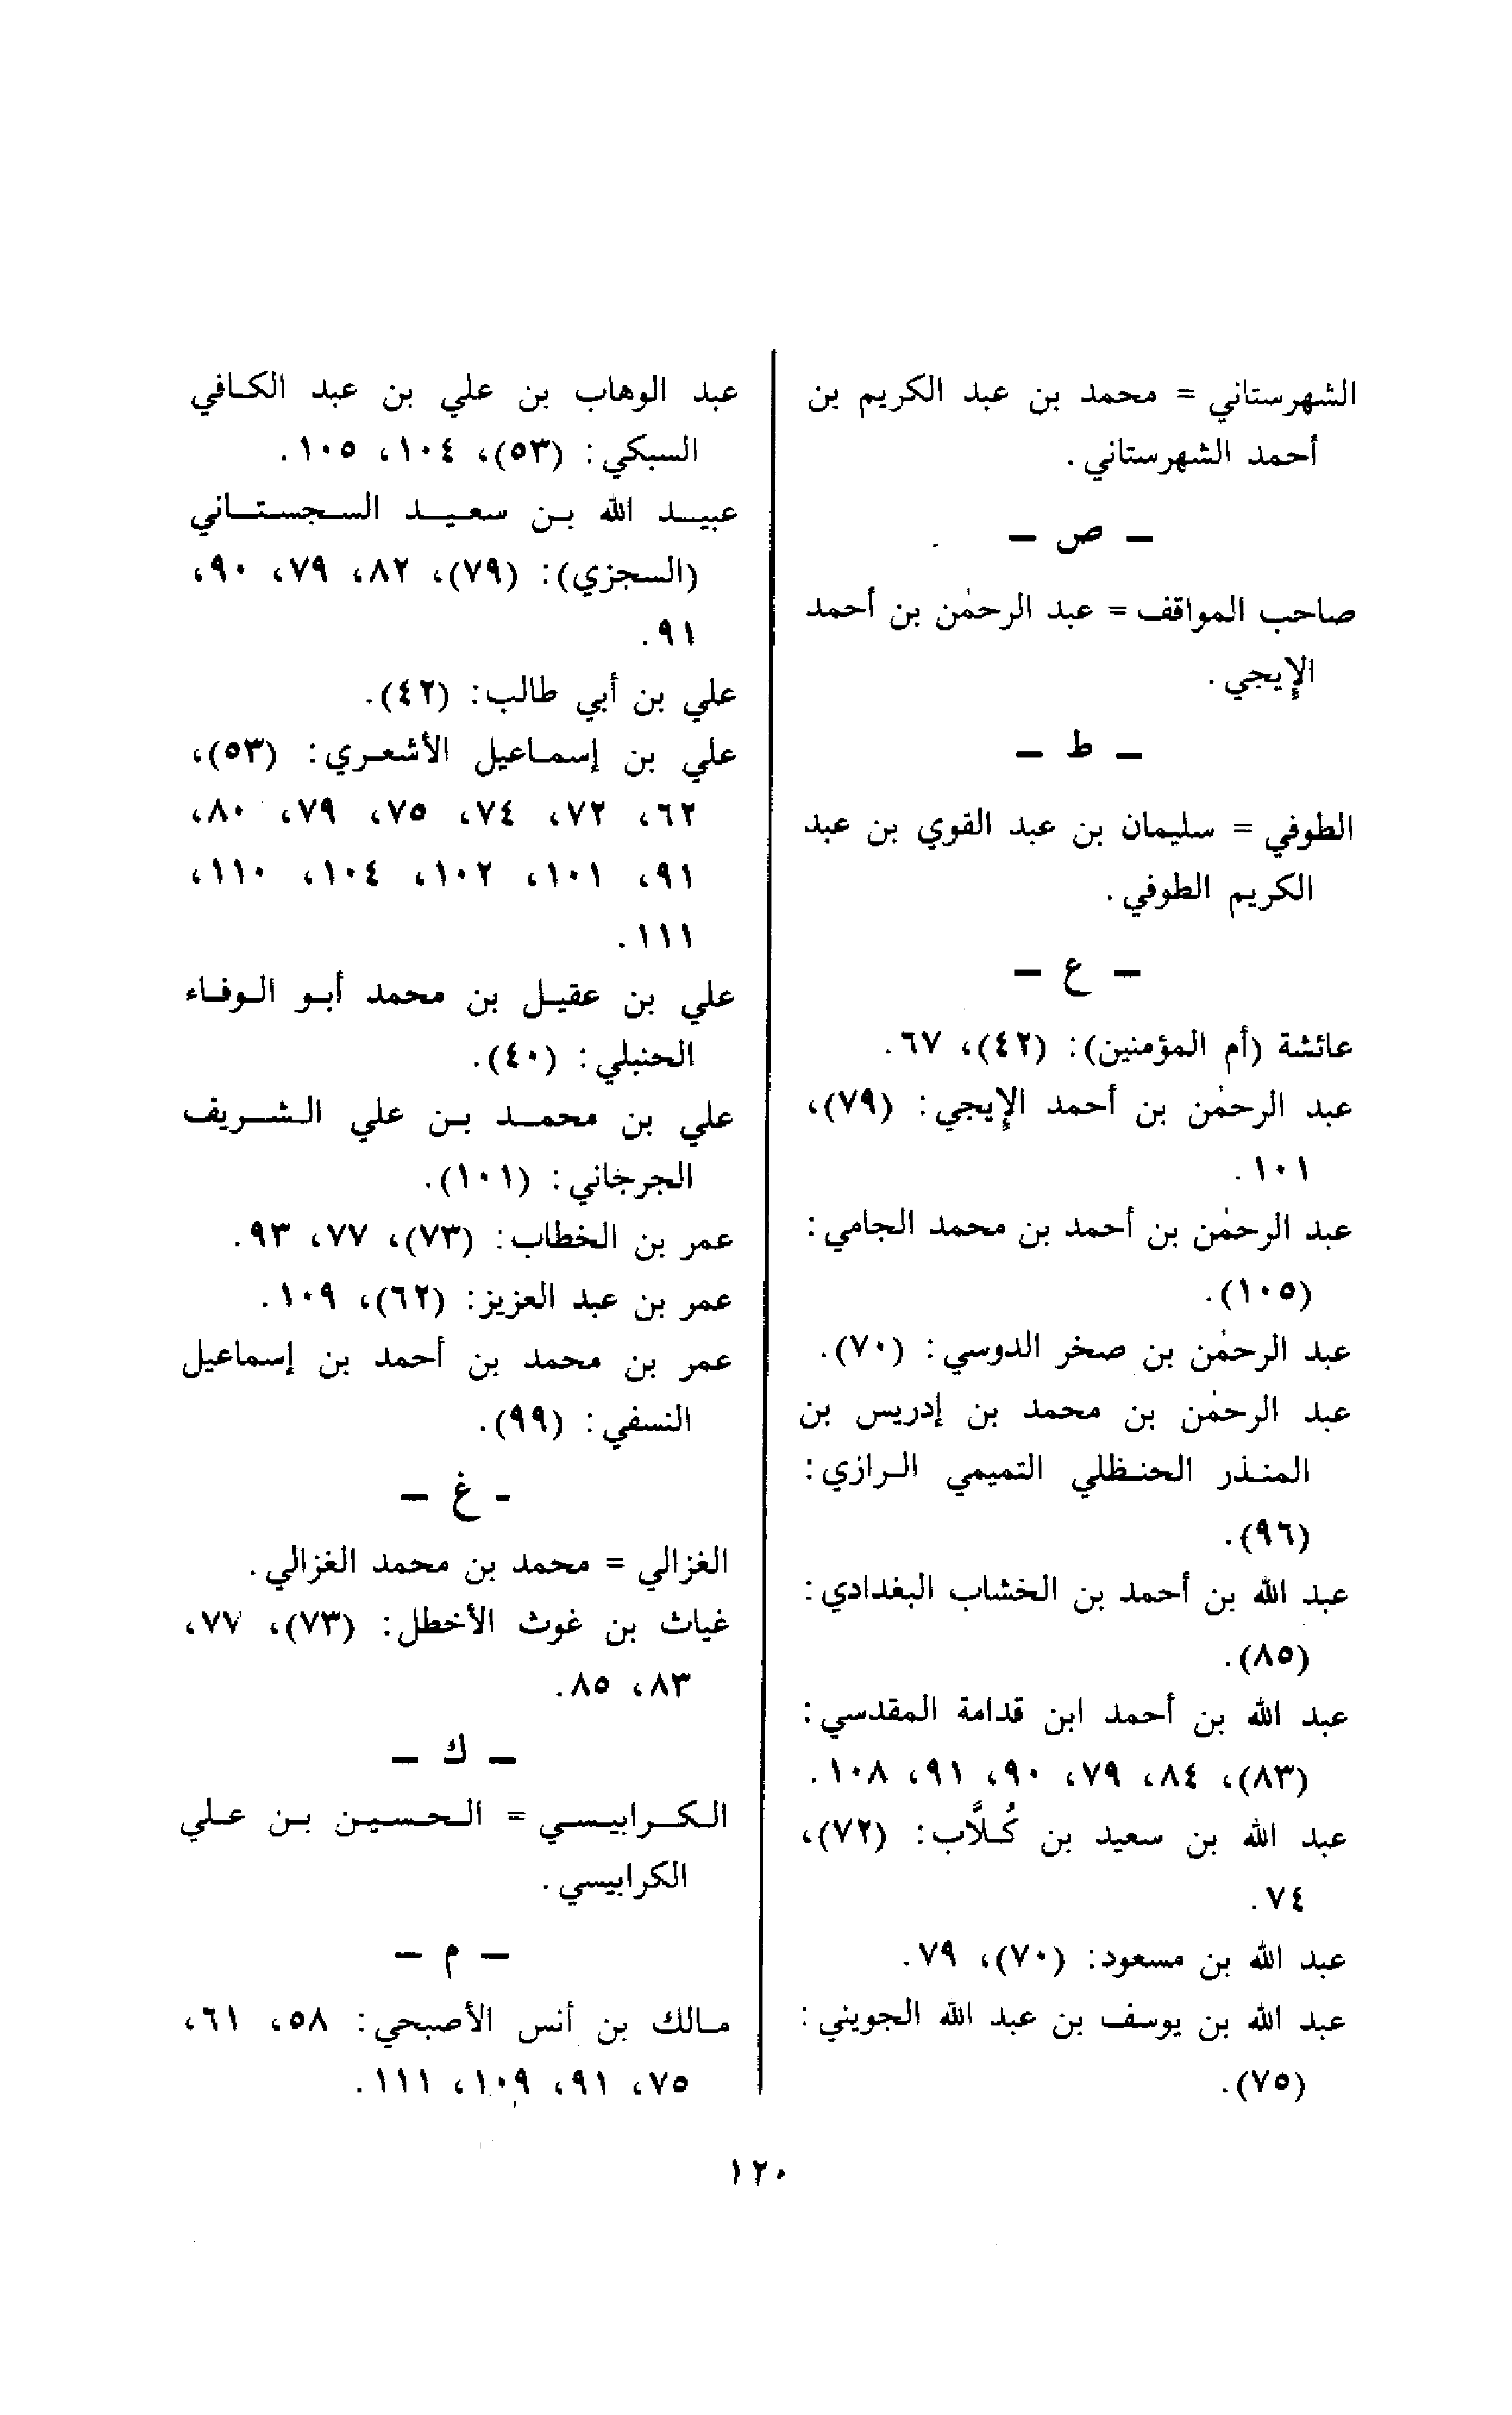 الشهرستاني = محمد بن عبد الكريم بن
أحمد الشهرستاني.
– ص –
صاحب المواقف = عبد الرحمٰن بن أحمد
الإيجي.
– ط –
الطوفي = سليمان بن عبد القوي بن عبد
الكريم الطوفي.
– ع –
عائشة (أم المؤمنين): (٤٢)، ٦٧.
عبد الرحمٰن بن أحمد الإيجي: (٧٩)،
١٠١.
عبد الرحمٰن بن أحمد بن محمد الجامي:
(١٠٥).
عبد الرحمٰن بن صخر الدوسي: (٧٠).
عبد الرحمٰن بن محمد بن إدريس بن
المنذر الحنظلي التميمي الرازي:
(٩٦).
عبد الله بن أحمد بن الخشاب البغدادي:
(٨٥).
عبد الله بن أحمد ابن قدامة المقدسي:
(٨٣)، ٨٤، ٧٩، ٩٠، ٩١، ١٠٨.
عبد الله بن سعيد بن كُلاَّب: (٧٢)،
٧٤.
عبد الله بن مسعود: (٧٠)، ٧٩.
عبد الله بن يوسف بن عبد الله الجويني:
(٧٥).
عبد الوهاب بن علي بن عبد الكافي
السبكي: (٥٣)، ١٠٤، ١٠٥.
عبيد الله بن سعيد السجستاني
(السجزي): (٧٩)، ٨٢، ٧٩، ٩٠،
٩١.
علي بن أبي طالب: (٤٢).
علي بن إسماعيل الأشعري: (٥٣)،
٦٢، ٧٢، ٧٤، ٧٥، ٧٩، ٨٠،
٩١، ١٠١، ١٠٢، ١٠٤، ١١٠،
١١١.
علي بن عقيل بن محمد أبو الوفاء
الحنبلي: (٤٠).
علي بن محمد بن علي الشريف
الجرجاني: (١٠١).
عمر بن الخطاب: (٧٣)، ٧٧، ٩٣.
عمر بن عبد العزيز: (٦٢)، ١٠٩.
عمر بن محمد بن أحمد بن إسماعيل
النسفي: (٩٩).
- غ –
الغزالي = محمد بن محمد الغزالي.
غياث بن غوث الأخطل: (٧٣)، ٧٧،
٨٣، ٨٥.
– ك –
الكرابيسي = الحسين بن علي
الكرابيسي.
– م –
مالك بن أنس الأصبحي: ٥٨، ٦١،
٧٥، ٩١، ١٠٩، ١١١.
١٢٠